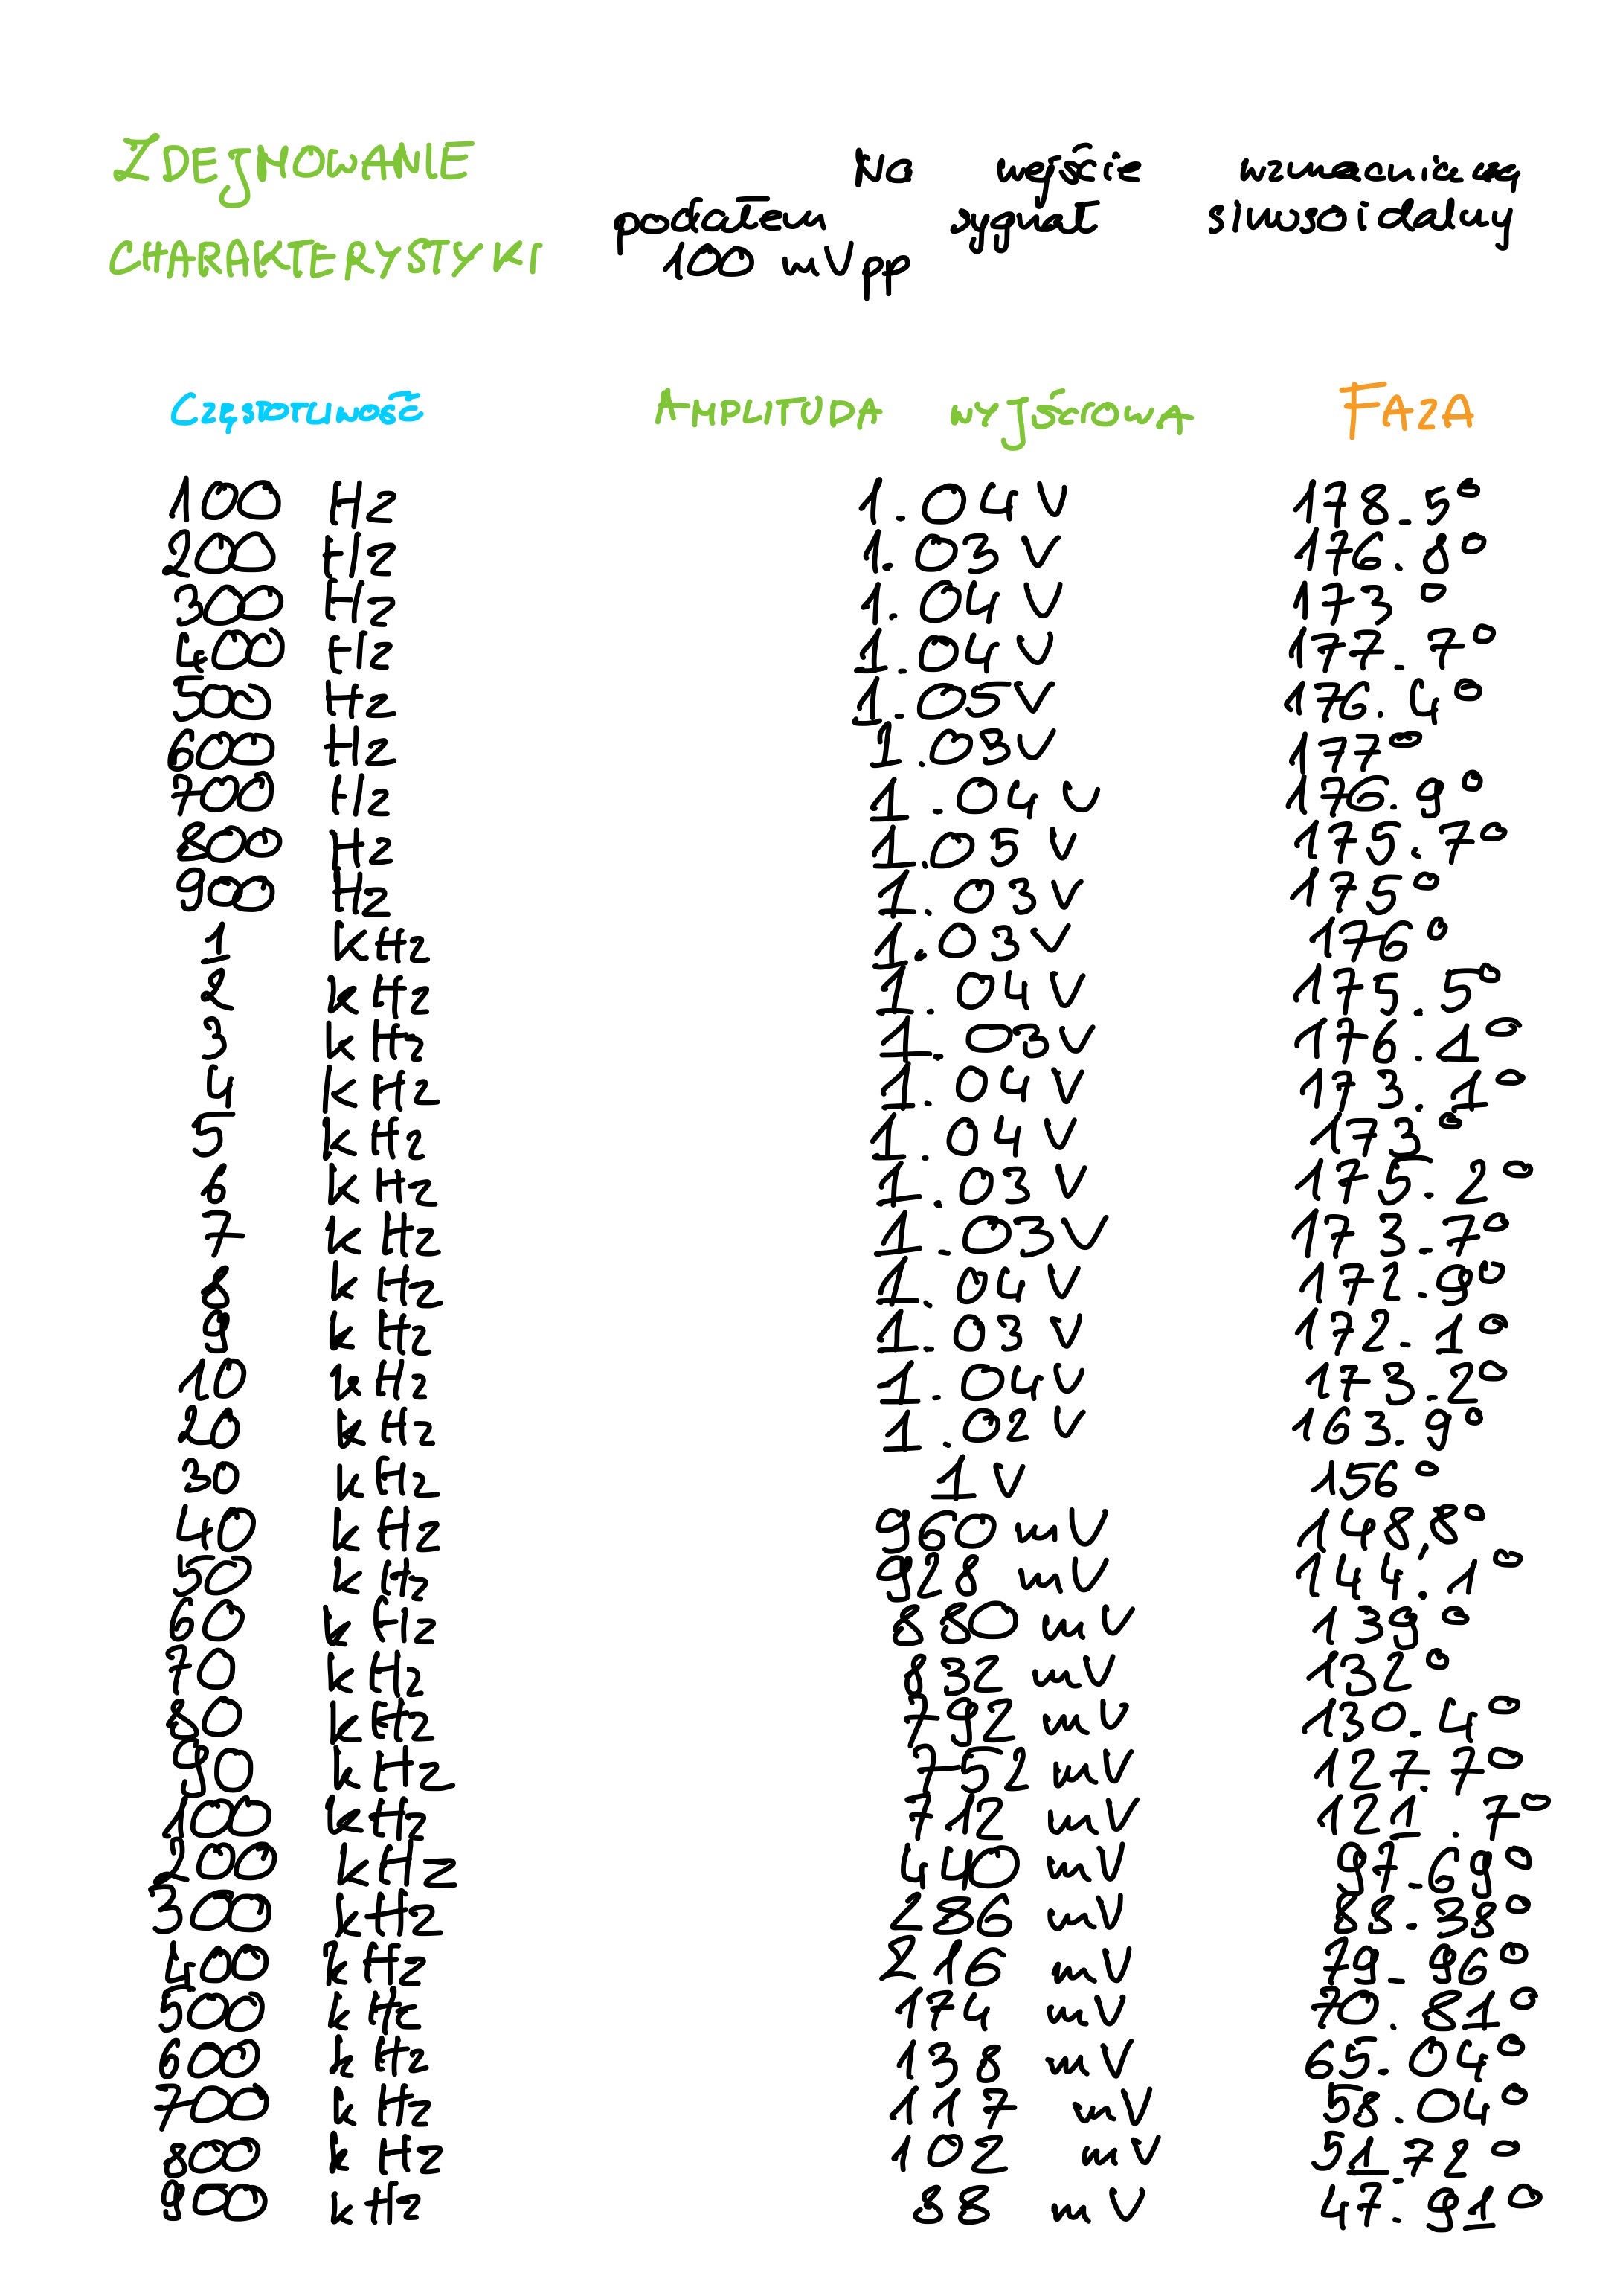 ZDEJMOWANIE
CHARAKTERYSTYKI
Na wejście wzmacniacza
podałem sygnał sinusoidalny
100 mVpp
CZĘSTOTLIWOŚĆ AMPLITUDA WYJŚCIOWA FAZA
100 Hz 1.04 V 178.5°
200 Hz 1.03 V 176.8°
300 Hz 1.04 V 173°
400 Hz 1.04 V 177.7°
500 Hz 1.05 V 176.4°
600 Hz 1.03 V 177°
700 Hz 1.04 V 176.9°
800 Hz 1.05 V 175.7°
900 Hz 1.03 V 175°
1 kHz 1.03 V 176°
2 kHz 1.04 V 175.5°
3 kHz 1.03 V 176.1°
4 kHz 1.04 V 173.1°
5 kHz 1.04 V 173°
6 kHz 1.03 V 175.2°
7 kHz 1.03 V 173.7°
8 kHz 1.04 V 172.9°
9 kHz 1.03 V 172.1°
10 kHz 1.04 V 173.2°
20 kHz 1.02 V 163.9°
30 kHz 1 V 156°
40 kHz 960 mV 148.8°
50 kHz 928 mV 144.1°
60 kHz 880 mV 139°
70 kHz 832 mV 132°
80 kHz 792 mV 130.4°
90 kHz 752 mV 127.7°
100 kHz 712 mV 121.7°
200 kHz 440 mV 97.69°
300 kHz 286 mV 88.38°
400 kHz 216 mV 79.96°
500 kHz 174 mV 70.81°
600 kHz 138 mV 65.04°
700 kHz 117 mV 58.04°
800 kHz 102 mV 51.72°
900 kHz 88 mV 47.91°